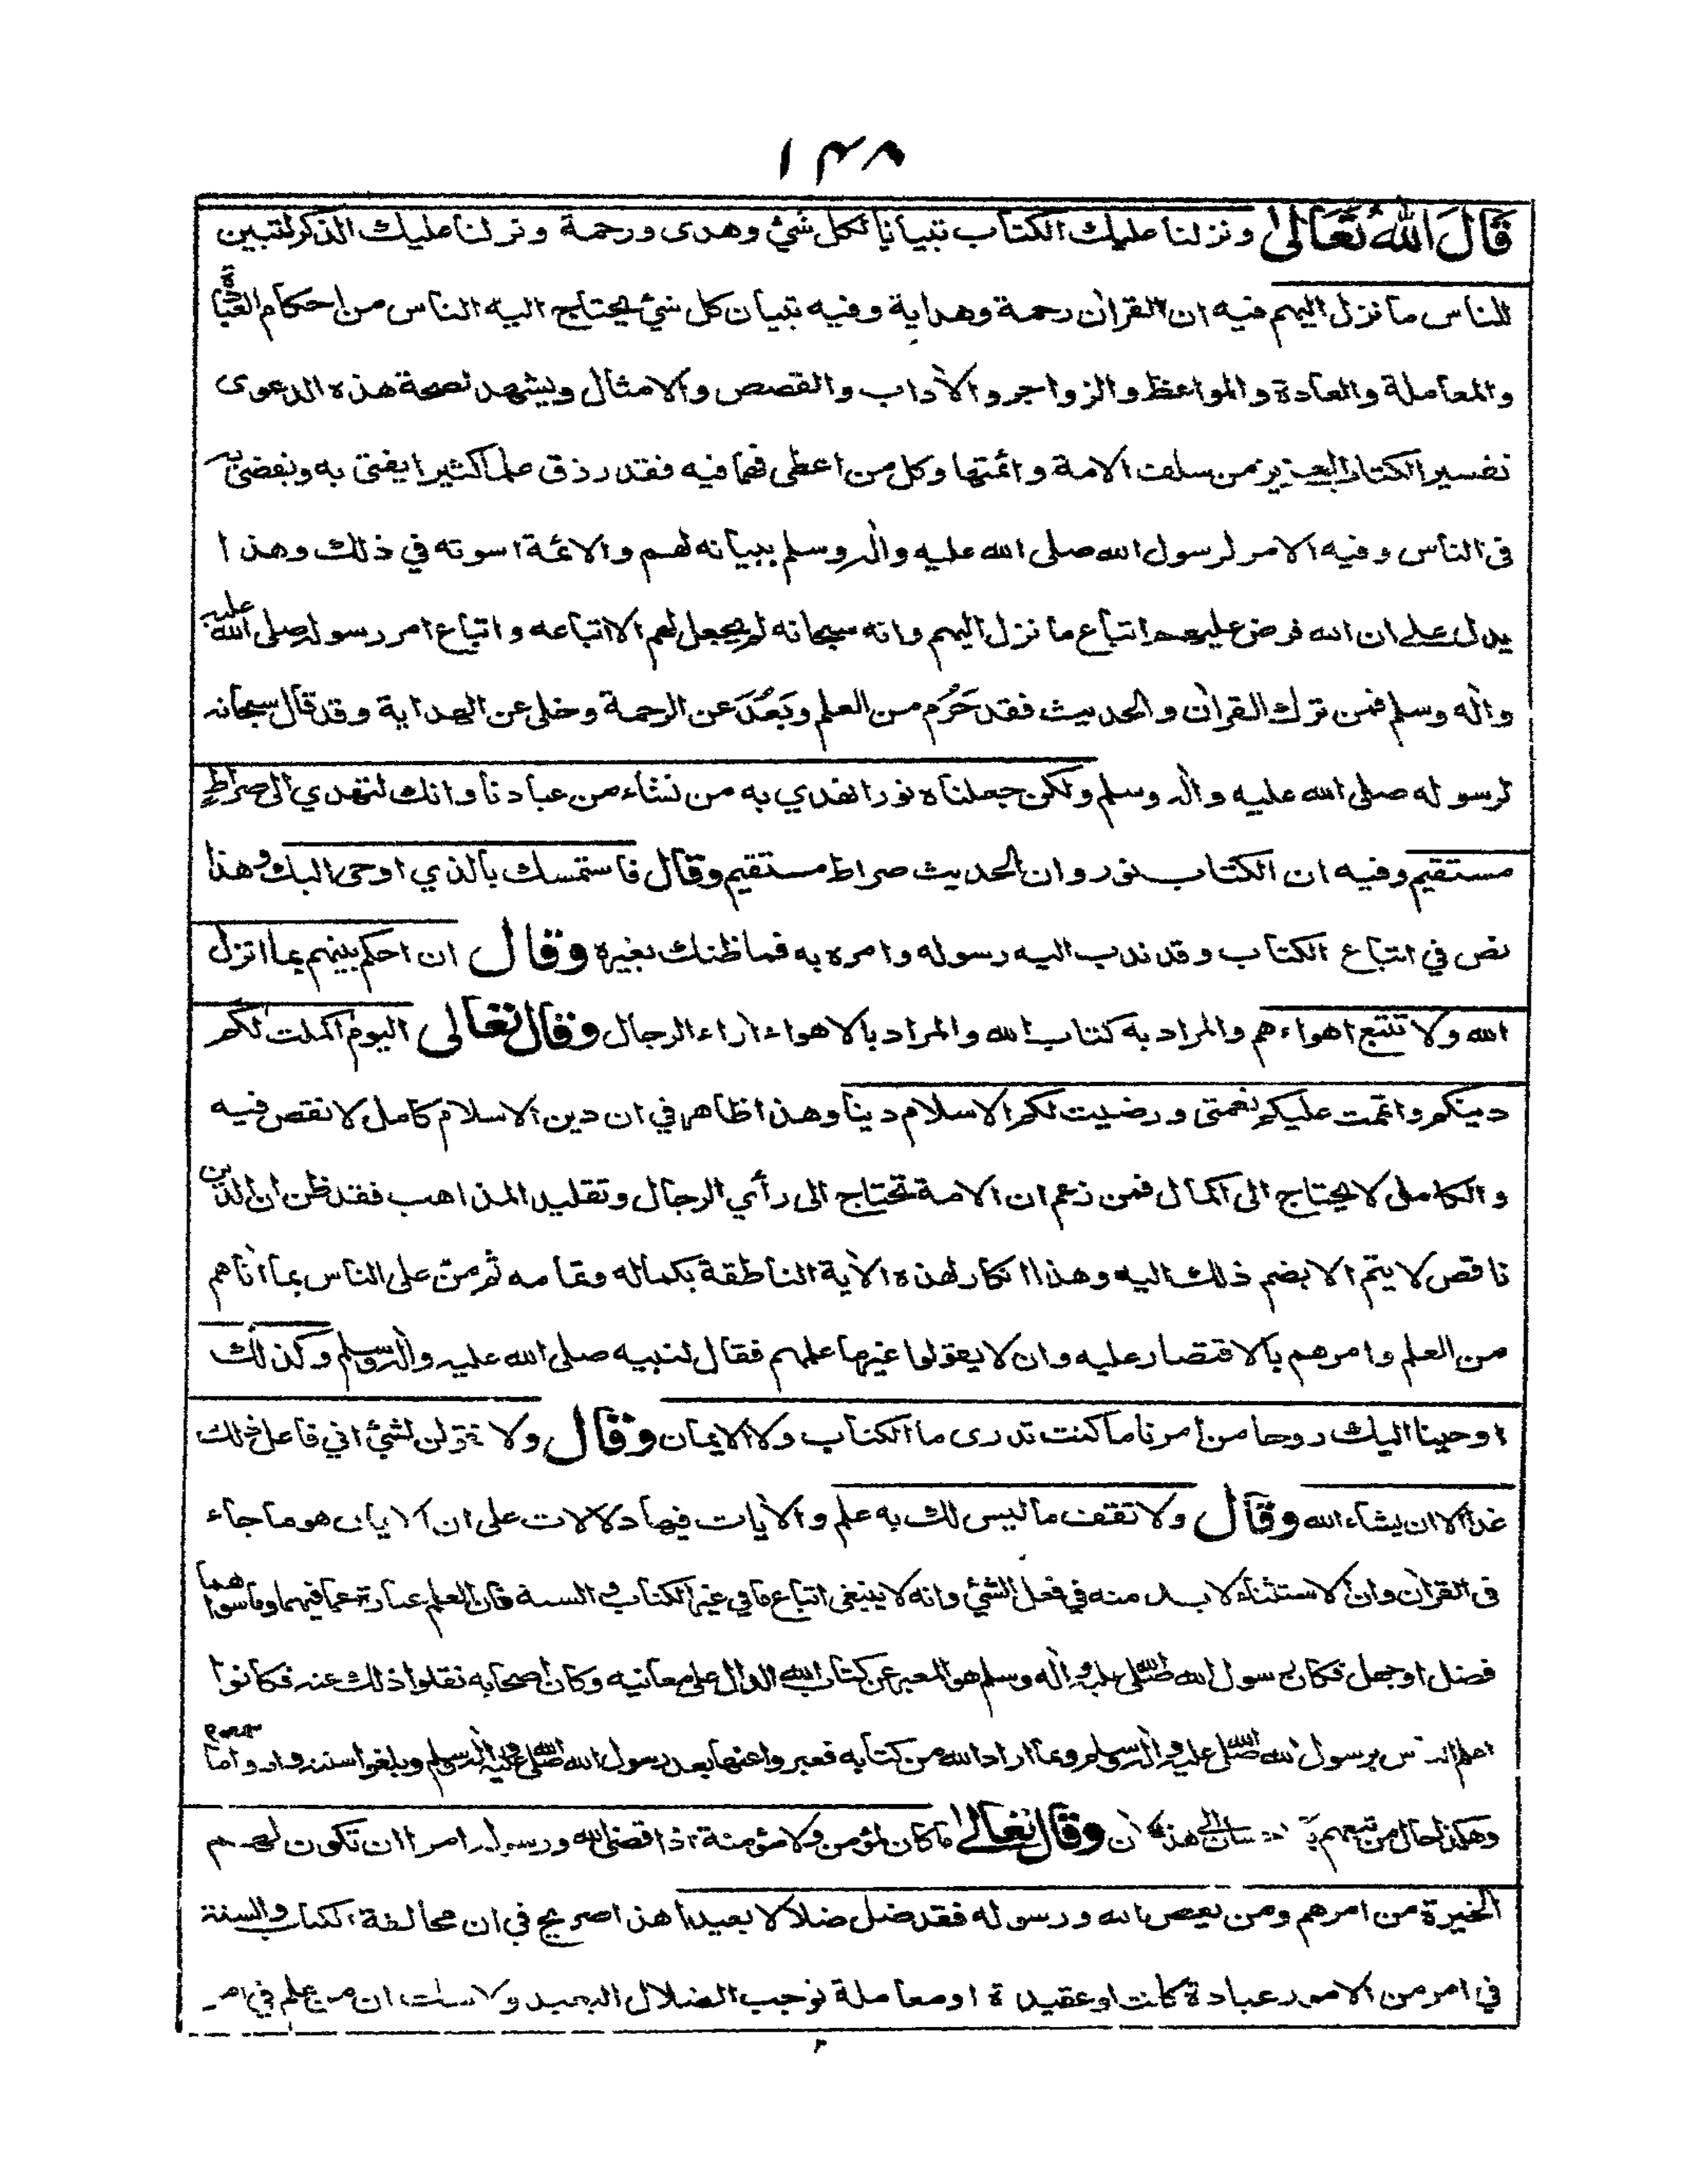 ١٤٨
قَالَ اللهُ تَعَالىٰ ونزلنا عليك الكتاب تبيانا لكل شئ وهدى ورحمة ونزلنا عليك الذكر لتبين
للناس ما نزل اليهم فيه ان القرآن رحمة وهداية وفيه تبيان كل شئ يحتاج اليه الناس من احكام العبادة
والمعاملة والعادة والمواعظ والزواجر والآداب والقصص والامثال ويشهد لصحة هذه الدعوى
تفسير الكتاب العزيز ممن سلف الامة وائمتها وكل من اعطى فهما فيه فقد رزق علما كثيرا يفتى به ويقضى به
فى الناس وفيه الامر لرسول الله صلى الله عليه وآله وسلم ببيانه لهم والائمة اسوته في ذلك وهذا
يدل على ان الله فرض عليهم اتباع ما نزل اليهم وانه سبحانه لم يجعل لهم الا اتباعه واتباع امر رسوله صلى الله عليه
وآله وسلم فمن ترك القرآن والحديث فقد حَرُم من العلم وبَعُدَ عن الرحمة وخلى عن الهداية وقد قال سبحانه
لرسوله صلى الله عليه وآله وسلم ولكن جعلناه نورا نهدي به من نشاء من عبادنا وانك لتهدي الى صراط
مستقيم وفيه ان الكتاب نور وان الحديث صراط مستقيم وقال فاستمسك بالذي اوحى اليك وهذا
نص في اتباع الكتاب وقد ندب اليه رسوله وامره به فما ظنك بغيره وقال ان احكم بينهم بما انزل
الله ولا تتبع اهواءهم والمراد به كتاب الله والمراد بالاهواء آراء الرجال وقال تعالى اليوم اكملت لكم
دينكم واتممت عليكم نعمتى ورضيت لكم الاسلام دينا وهذا ظاهر في ان دين الاسلام كامل لا نقص فيه
والكامل لا يحتاج الى اكمال فمن زعم ان الامة تحتاج الى رأي الرجال وتقليد المذاهب فقد ظن ان الدين
ناقص لا يتم الا بضم ذلك اليه وهذا انكار لهذه الآية الناطقة بكماله وتمامه ثم منّ على الناس بما آتاهم
من العلم وامرهم بالاقتصار عليه وان لا يقولوا غيرها علمهم فقال لنبيه صلى الله عليه وآله وسلم وكذلك
اوحينا اليك روحا من امرنا ما كنت تدرى ما الكتاب ولا الايمان وقال ولا تقولن لشئ اني فاعل ذلك
غدا الا ان يشاء الله وقال ولا تقف ما ليس لك به علم والآيات فيها دلالات على ان الايمان هو ما جاء
فى القرآن وان الاستثناء لا بد منه في فعل الشئ وانه لا ينبغى اتباع ما في غير الكتاب والسنة فان العلم عبارة عما فيهما وما سواهما
فضل او جهل فكان رسول الله صلى الله عليه وآله وسلم هو المعبر عن كتاب الله الدال على معانيه وكان اصحابه نقلوا ذلك عنه فكانوا
اعلم الناس برسول الله صلى الله عليه وآله وسلم وبما اراد الله من كتابه فعبروا عنها بعد رسول الله صلى الله عليه وآله وسلم وبلغوا
وهكذا حال من تبعهم هذا وقال تعالى ما كان لمؤمن ولا مؤمنة اذا قضى الله ورسوله امرا ان تكون لهم
الخيرة من امرهم ومن يعص الله ورسوله فقد ضل ضلالا بعيدا هذا صريح في ان مخالفة الكتاب والسنة
في امر من الامور عبادة كانت او عقيدة او معاملة توجب الضلال البعيد ولا ان